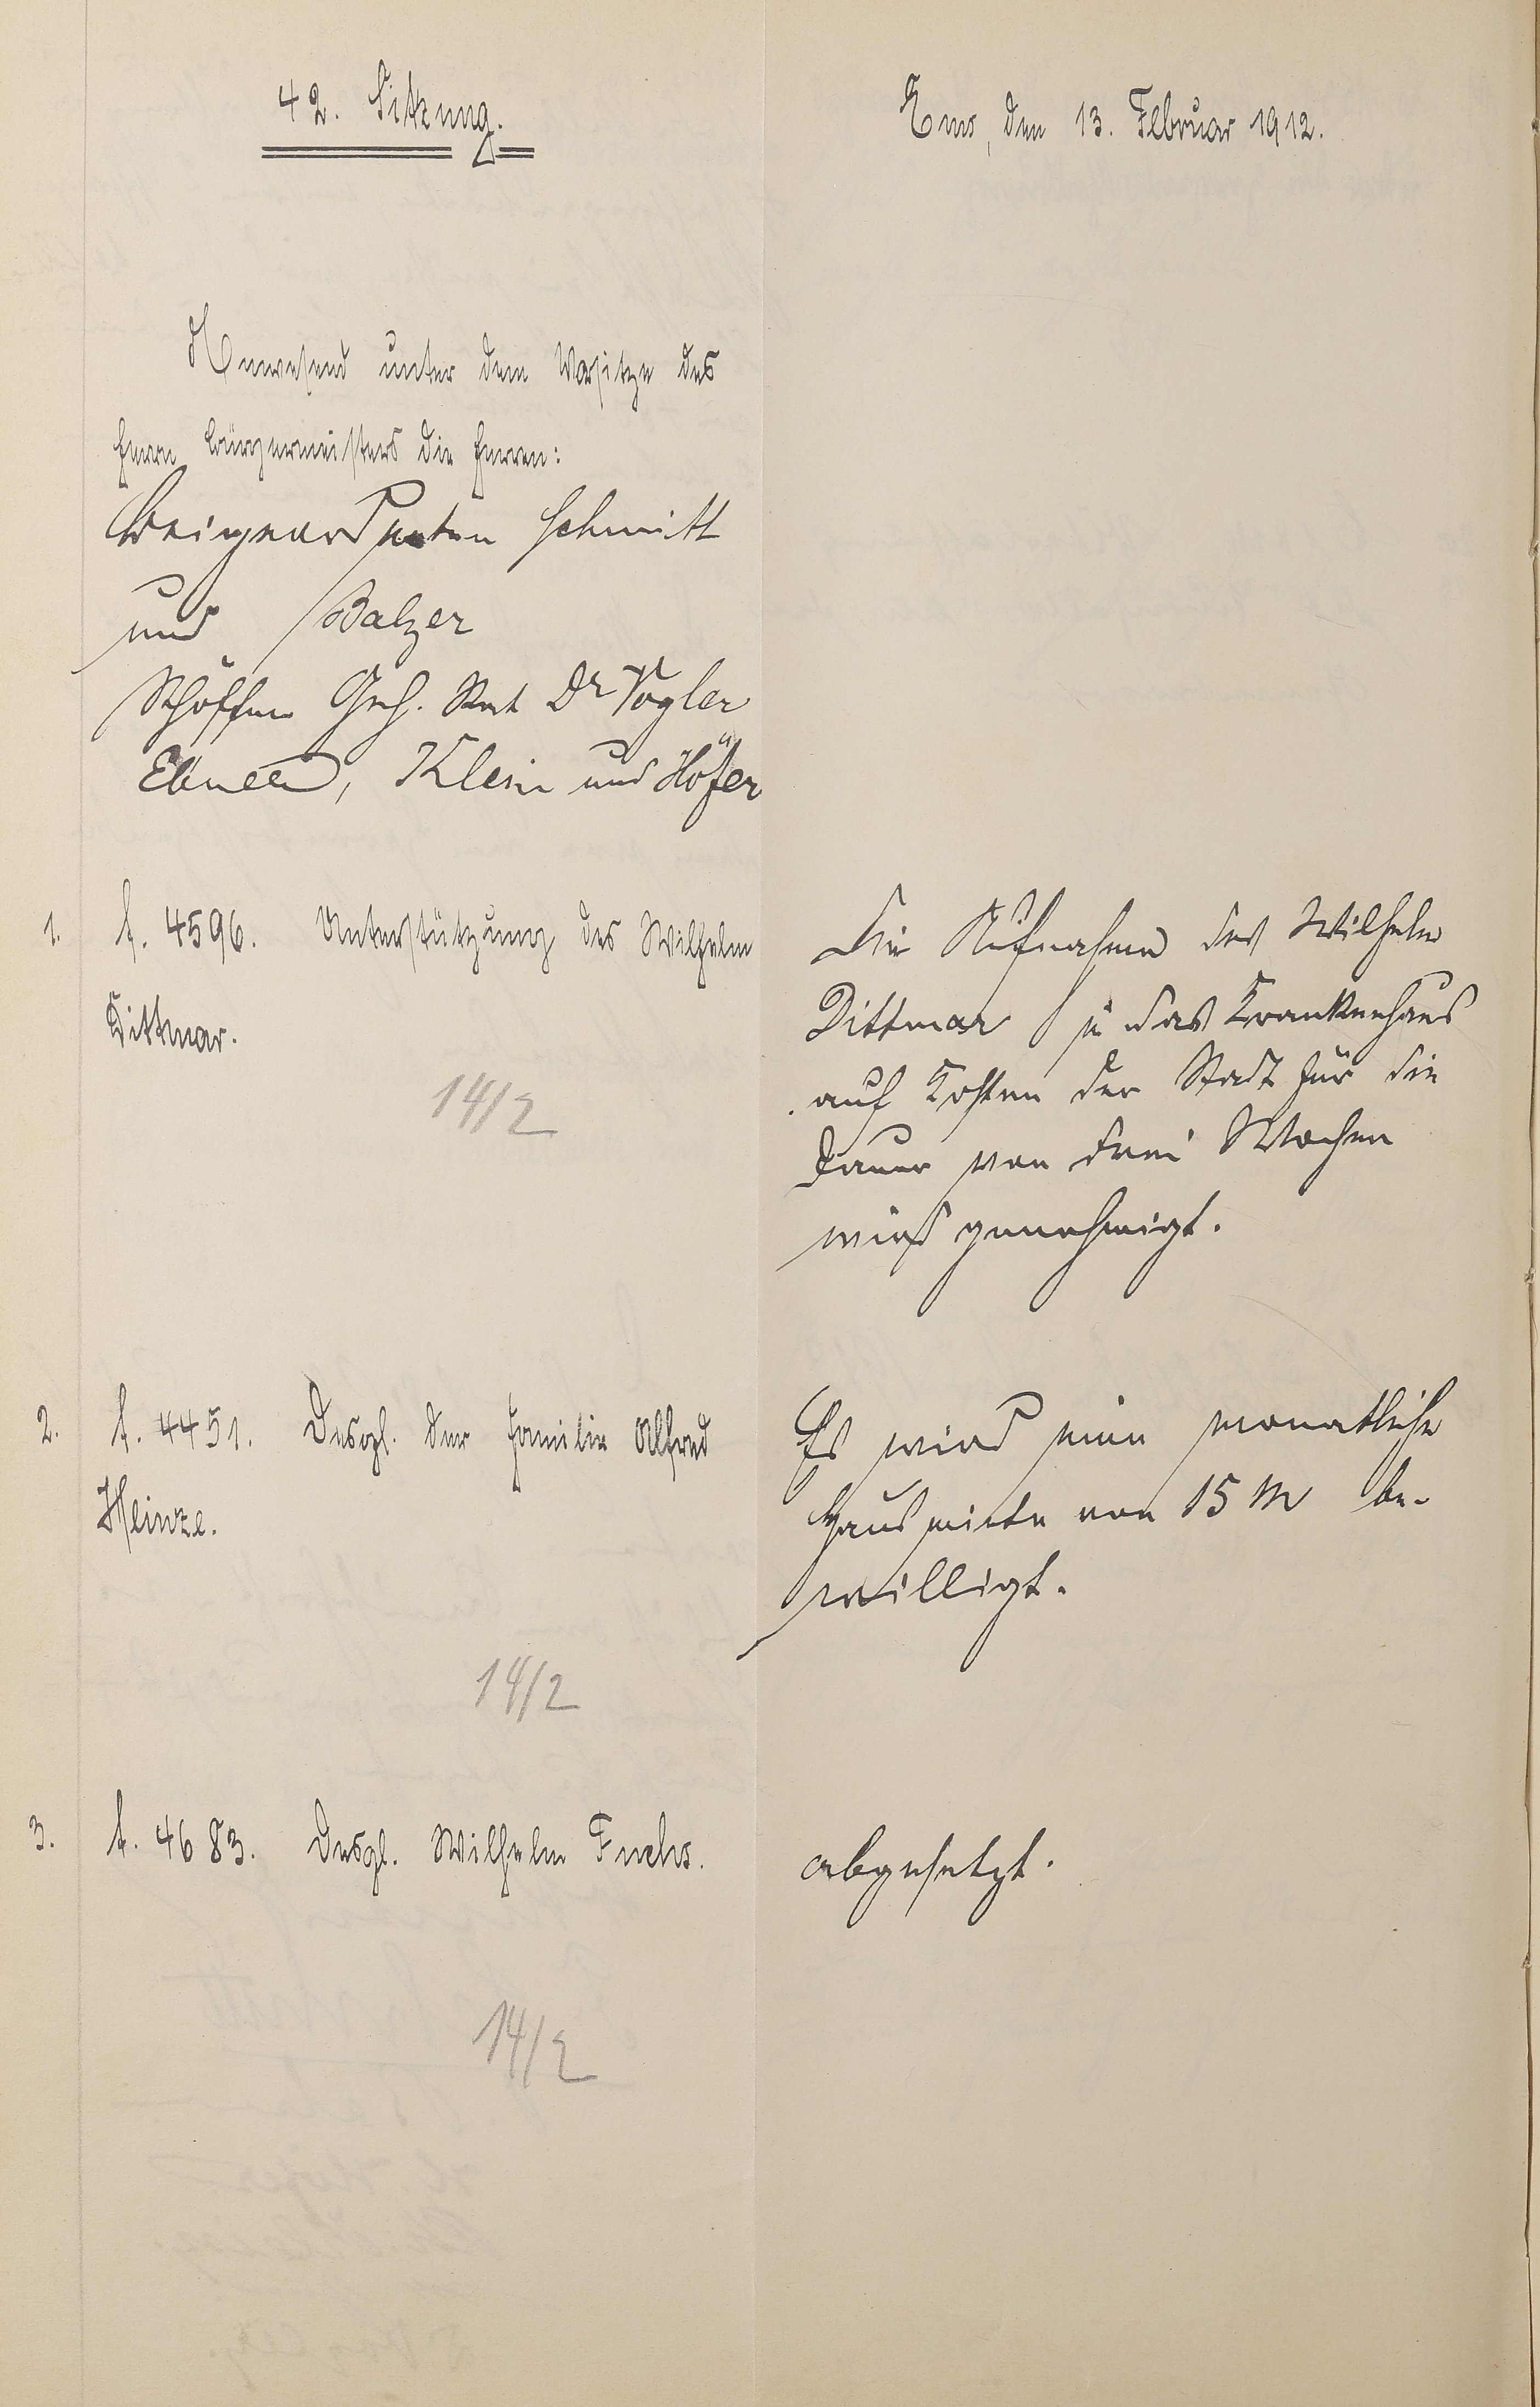 42. Sitzung.
Ems, den 13. Februar 1912.
Anwesend unter dem Vorsitze des
Herrn Bürgermeisters die Herren:
Beigeordneten Schmitt
und Balzer
Schöffen Geh. Rat Dr Vogler
Ebner, Klein und Höfer
1. f. 4596. Unterstützung des Wilhelm
Dittmar.
14/2
Die Aufnahme des Wilhelm
Dittmar in das Krankenhaus
auf Kosten der Stadt für die
Dauer von drei Wochen
wird genehmigt.
2. f. 4451. Desgl. der Familie Alfred
Heinze.
14/2
Es wird eine monatliche
Hausmiete von 15 M be-
willigt.
3. f. 4683. Desgl. Wilhelm Fuchs.
14/2
abgesetzt.